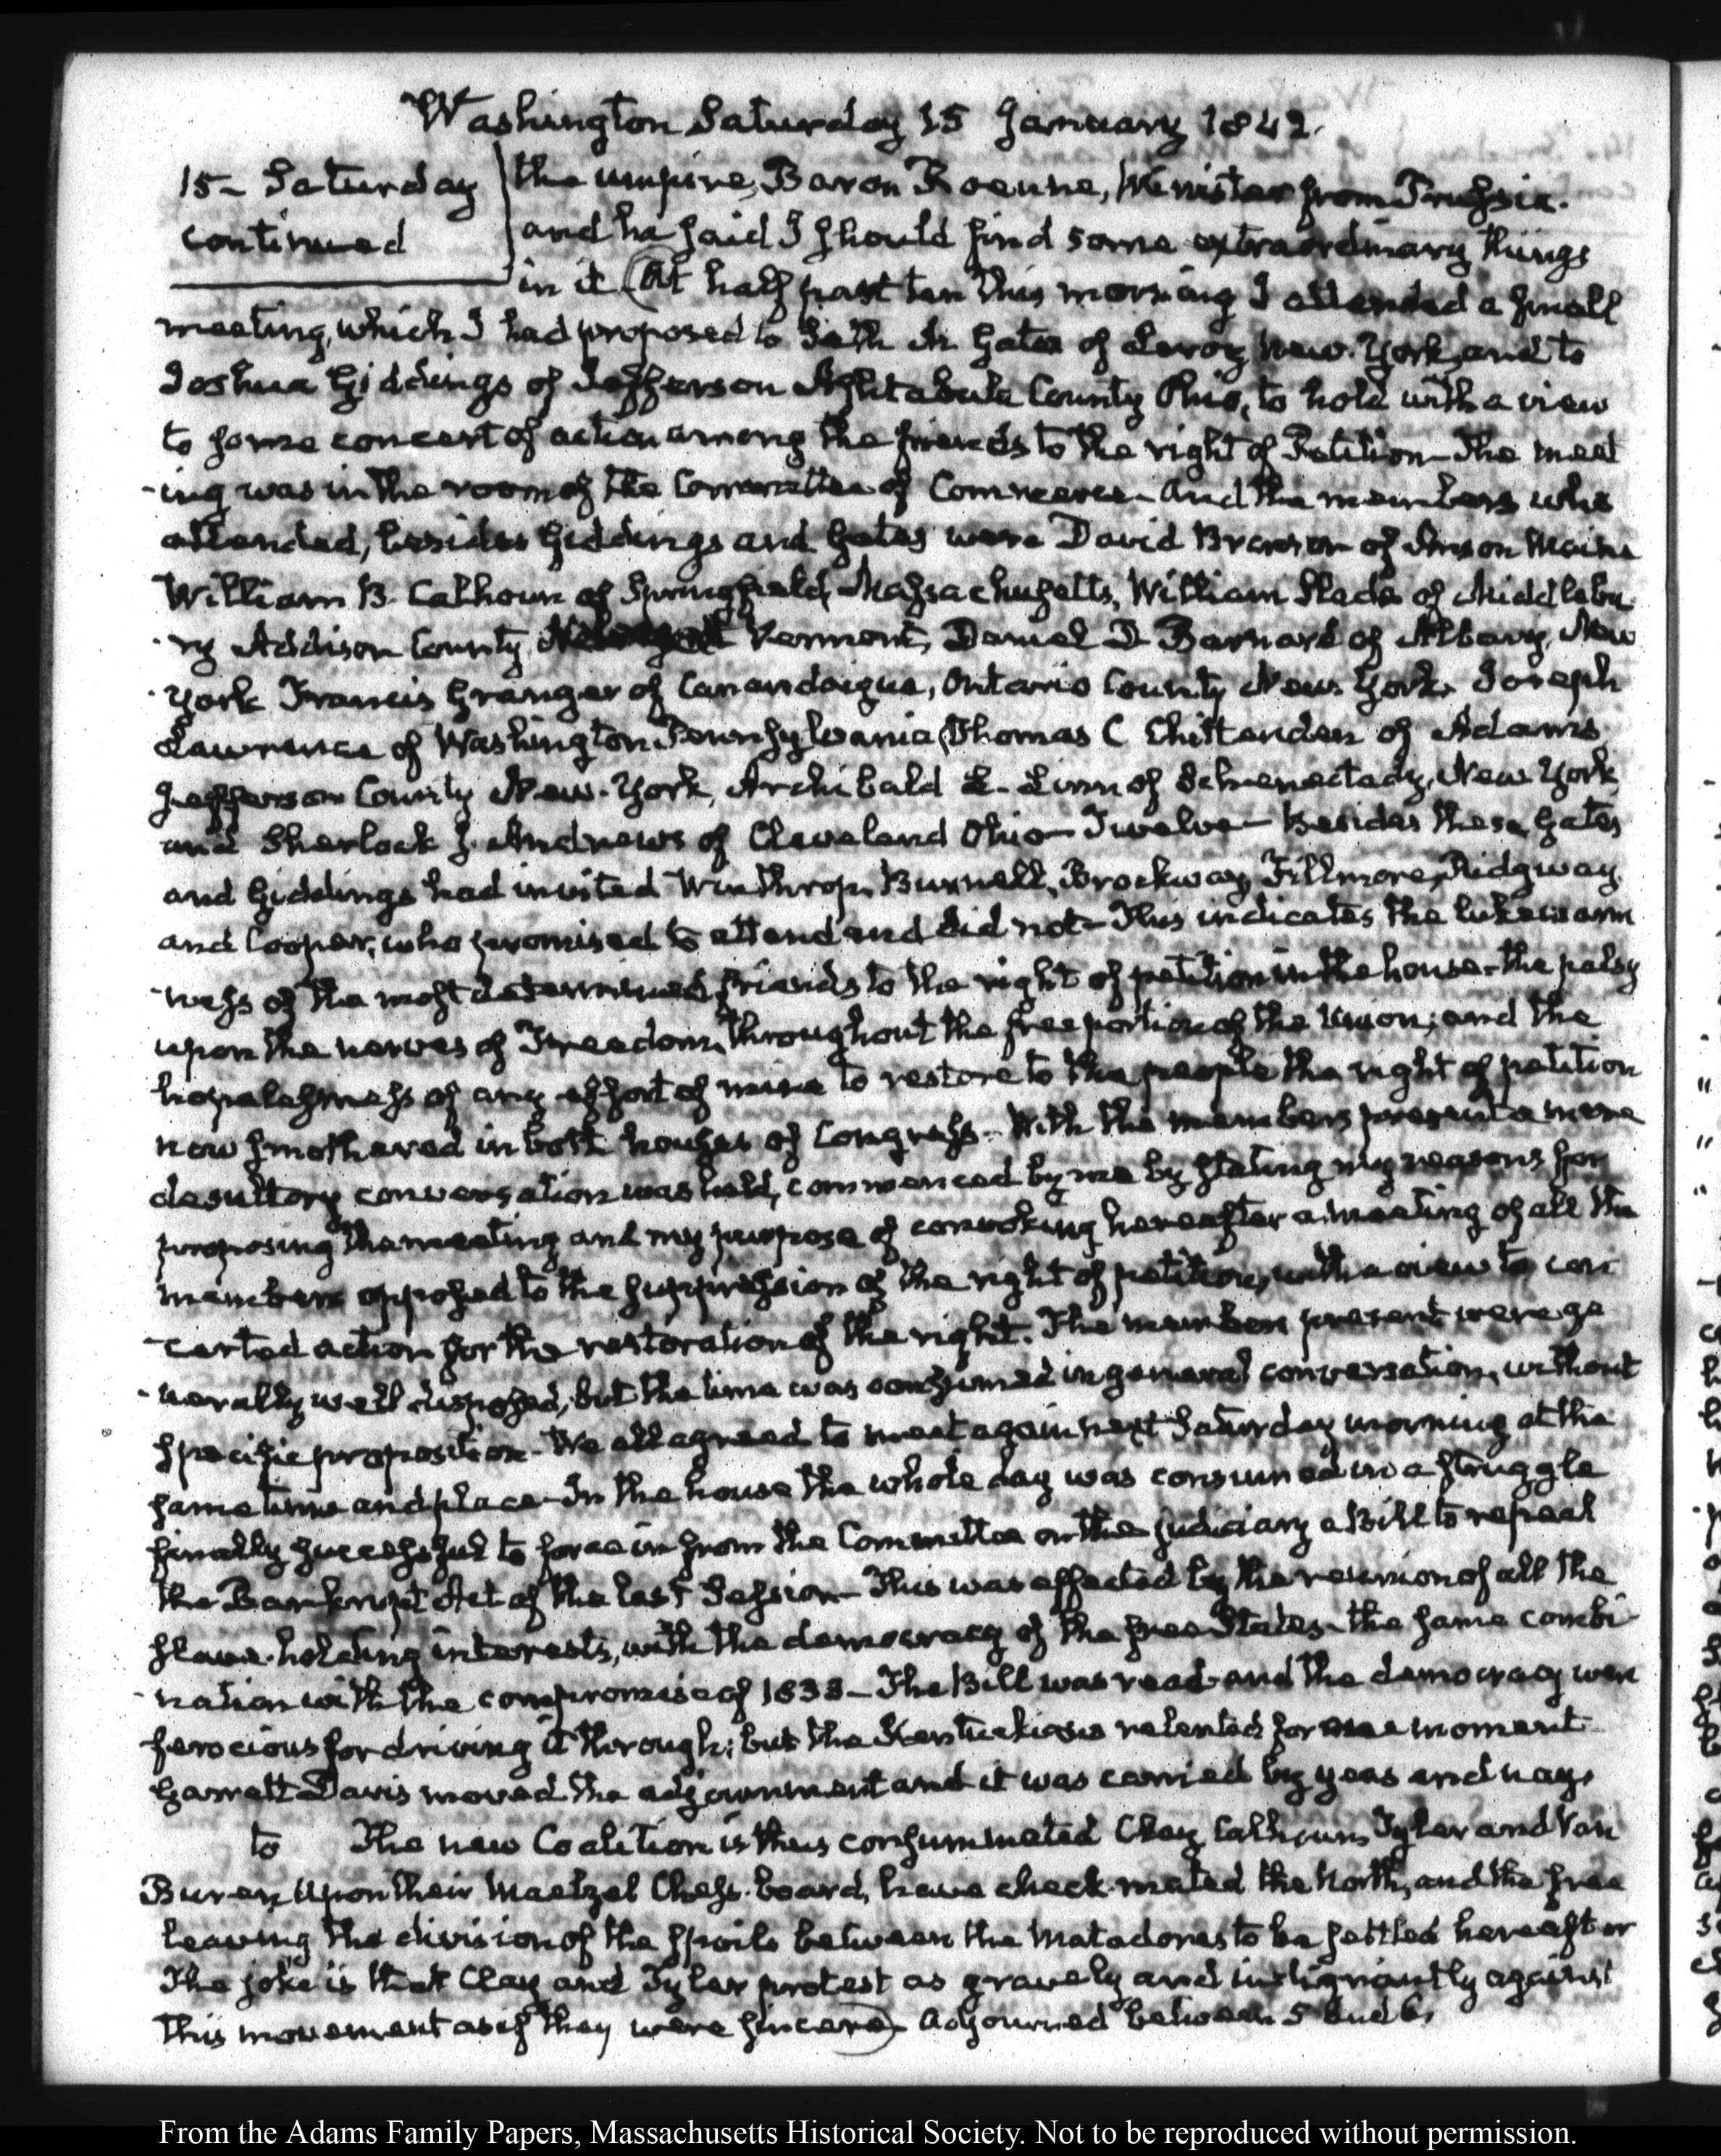 Washington Saturday 15 January 1842.
15 - Saturday
continued
the umpire, Baron Roenne, Minister from Prussia.
and he said I should find some extraordinary things
in it (At half past ten this morning I attended a small
meeting, which I had proposed to Seth M. Gates of Leroy New-York, and to
Joshua Giddings of Jefferson Ashtabula County Ohio, to hold with a view
to some concert of action among the friends to the right of Petition - The meet
-ing was in the room of the Committee of Commerce - and the members who
attended, besides Giddings and Gates were David Bronson of Anson Maine
William B. Calhoun of Springfield, Massachusetts, William Slade of Middlebu
-ry Addison County Vermont, Daniel D Barnard of Albany, New
-York Francis Granger of Canandaigua, Ontario County New York. Joseph
Lawrence of Washington Pennsylvania, Thomas C Chittenden of Adams
Jefferson County New-York, Archibald L. Linn of Schenectady, New York
and Sherlock J. Andrews of Cleveland Ohio - Twelve - Besides these, Gates
and Giddings had invited Winthrop, Burnell, Brockway, Fillmore, Ridgway,
and Cooper, who promised to attend and did not - This indicates the lukewarm
-ness of the most determined friends to the right of petition in the house - the palsy
upon the nerves of Freedom, throughout the free portion of the Union; and the
hopelessness of any effort of mine to restore to the people the right of petition
now smothered in both houses of Congress - With the members present a mere
desultory conversation was held, commenced by me by stating my reasons for
proposing the meeting and my purpose of convoking hereafter a meeting of all the
members opposed to the suppression of the right of petition, with a view to con
-certed action for the restoration of the right. The members present were ge
-nerally well disposed, but the time was consumed in general conversation, without
specific proposition - We all agreed to meet again next Saturday morning at the
same time and place - In the house the whole day was consumed in a struggle
finally successful to force in from the Committee on the judiciary a Bill to repeal
the Bankrupt Act of the last Session - This was effected by the reunion of all the
slave-holding interests, with the democracy of the free States - the same combi
-nation with the compromise of 1833 - The Bill was read and the democracy were
ferocious for driving it through; but the Kentuckians relented for moment
Garrett Davis moved the adjournment and it was carried by yeas and nays
to The new Coalition is thus consummated Clay Calhoun, Tyler and Van
Buren, upon their Maelzel Chess-board, have check-mated the North, and the free
leaving the division of the spoils between the Matadores to be settled hereafter
The joke is that Clay and Tyler protest as gravely and indignantly against
this movement as if they were sincere) - Adjourned between 5 and 6.
From the Adams Family Papers, Massachusetts Historical Society. Not to be reproduced without permission.